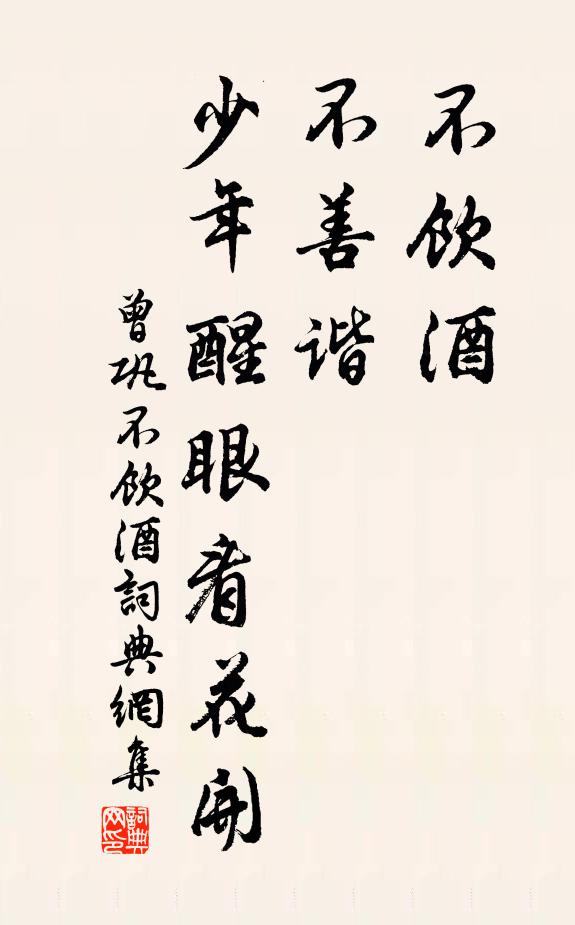 不飲酒
不善谐
少年醒眼看花開
曾巩不飲酒詞典網集
詞典网印